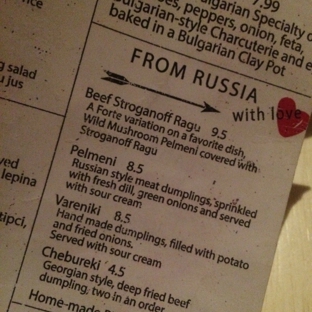 7.99
Bulgarian Specialty
peppers, onion, feta,
Bulgarian-style Charcuterie and
baked in a Bulgarian Clay Pot
salad
jus
lepina
FROM RUSSIA
with love
Beef Stroganoff Ragu 9.5
A Forte variation on a favorite dish,
Wild Mushroom Pelmeni covered with
Stroganoff Ragu
Pelmeni 8.5
Russian style meat dumplings, sprinkled
with fresh dill, green onions and served
with sour cream
Vareniki 8.5
Hand made dumplings, filled with potato
and fried onions.
Served with sour cream
Chebureki 4.5
Georgian style, deep fried beef
dumpling, two in an order
Home-made